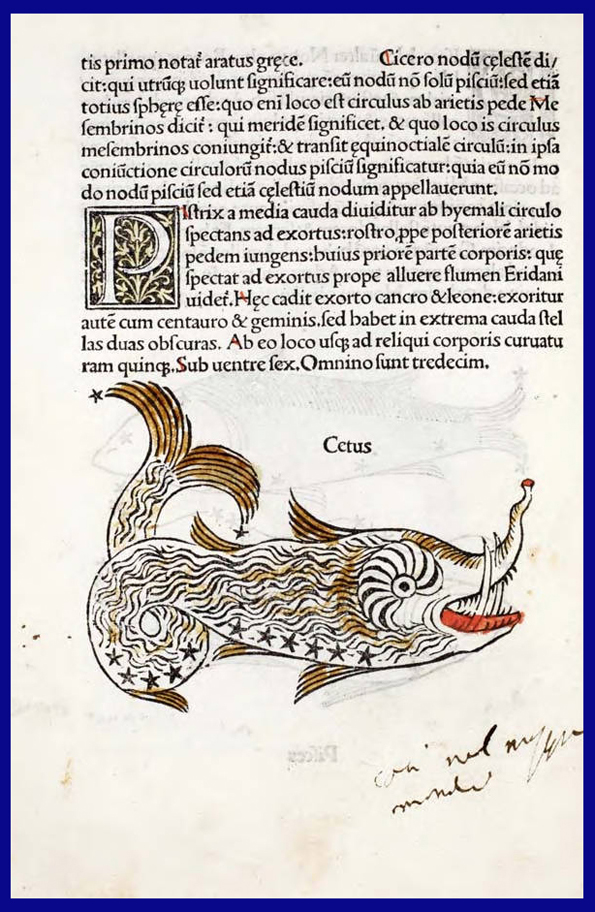 tis primo notat̃ aratus gręce. Cicero nodũ cęlestẽ di/
cit:qui utrũq; uolunt significare:eũ nodũ nõ solũ pisciũ:sed etiã
totius sphęrę esse:quo eni loco est circulus ab arietis pede Me
sembrinos dicit̃: qui meridẽ significet. & quo loco is circulus
mesembrinos coniungit̃:& transit ęquinoctialẽ circulũ:in ipsa
coniũctione circulorũ nodus pisciũ significatur:quia eũ nõ mo
do nodũ pisciũ sed etiã cęlestiũ nodum appellauerunt.
PIstrix a media cauda diuiditur ab hyemali circulo
spectans ad exortus:rostro,ppe posteriorẽ arietis
pedem iungens:huius priorẽ partẽ corporis: quę
spectat ad exortus prope alluere flumen Eridani
uidet̃.Hęc cadit exorto cancro &leone:exoritur
autẽ cum centauro & geminis.sed habet in extrema cauda stel
las duas obscuras. Ab eo loco usq; ad reliqui corporis curuatu
ram quinq;.Sub uentre sex.Omnino sunt tredecim.
Cetus
nel